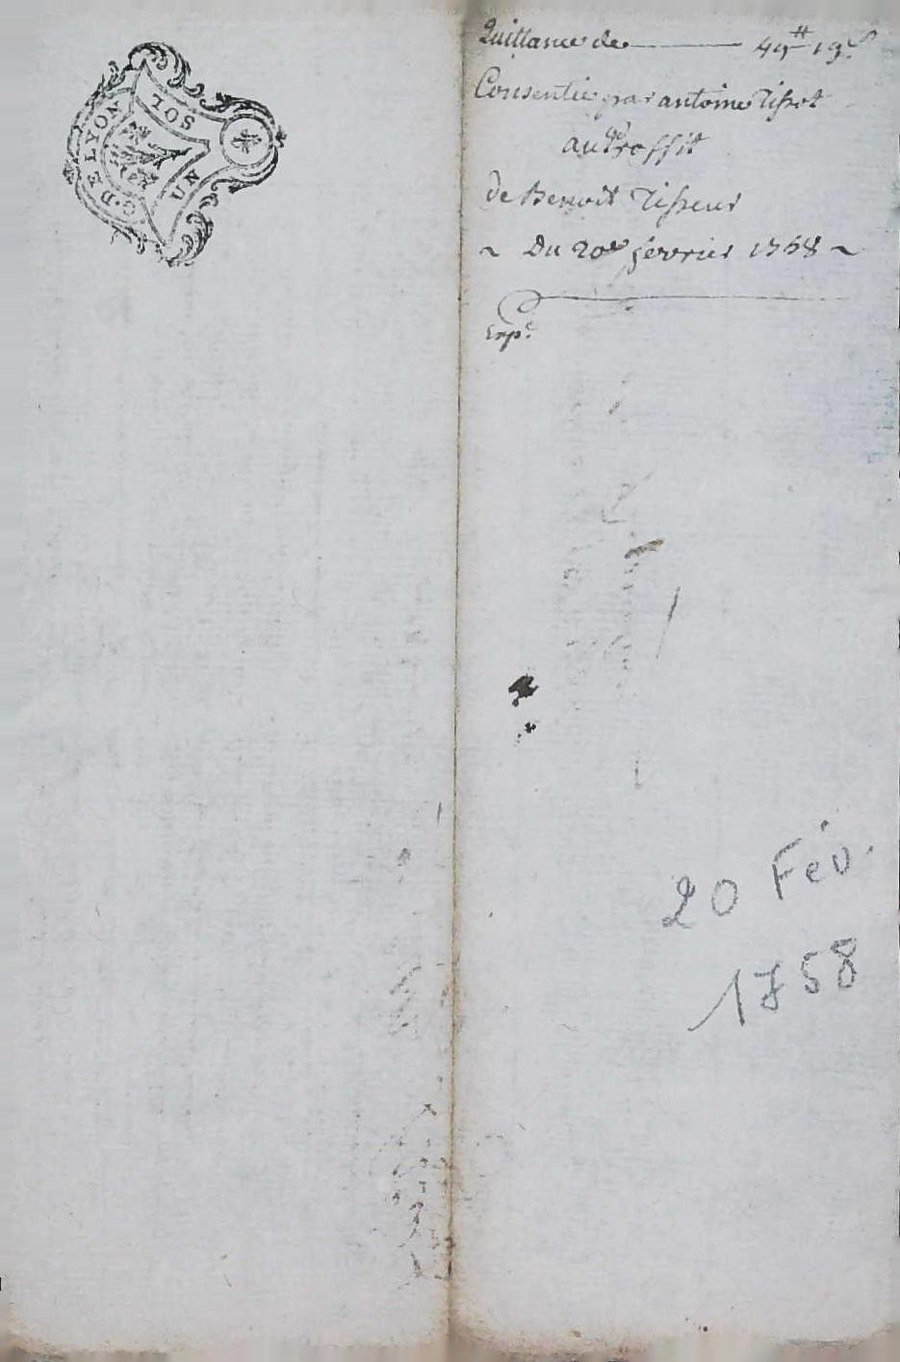 G. DE LYON
UN SOL
Quittance de 49# 19s
Consentie par antoine Tissot
au Proffit
de Benoit Tisseur
~ Du 20e fevrier 1758 ~
Exp.e
20 Fév.
1758